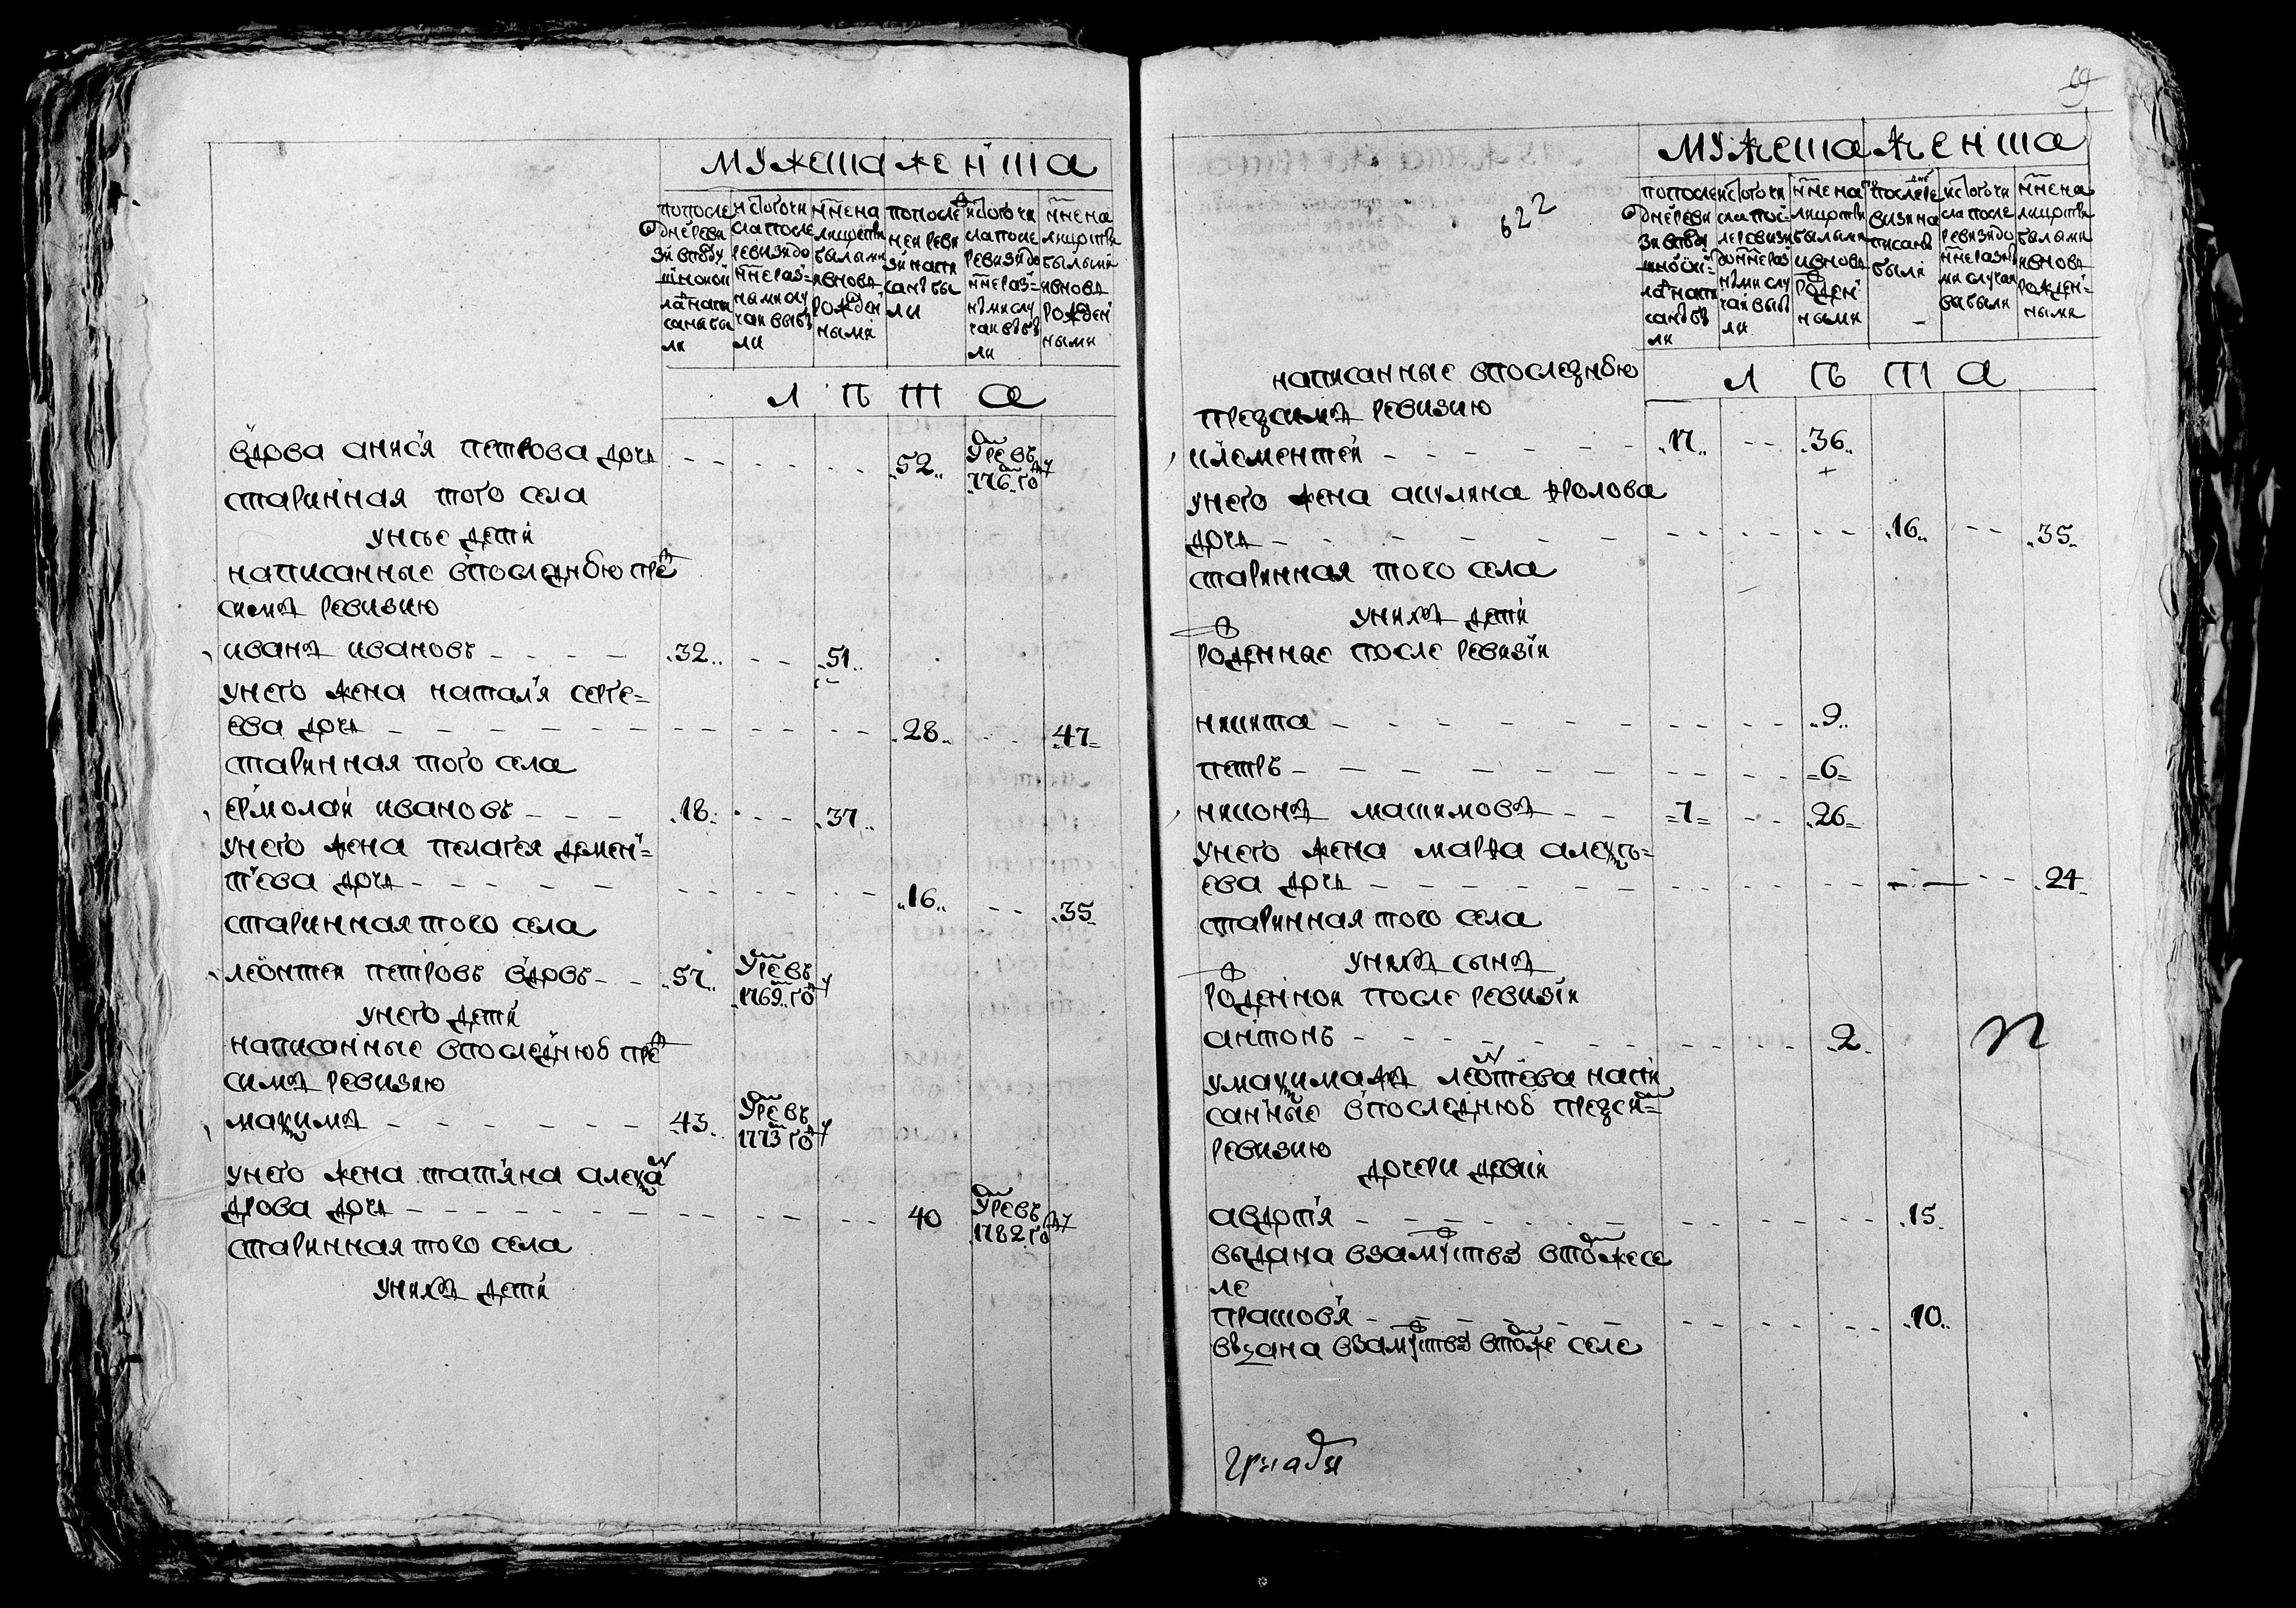 мужеска женска
попосле дней реви зи вподу шной окла написаны были
ис того числа после ревизи до ныне разными случаи выбыли
ныне на лицо ства былыми и вновь рожденными
попоследней ревизи написаны были
ис того числа после ревизи до ныне разными случаи выбыли
ныне на лицо ства былыми и вновь рожденными
лѣта
вдова анися петрова дочь - - - - - - .52.. умре въ .776. году
старинная того села
унѣе дети
написанные впоследнюю пред
симъ ревизию
иванъ ивановъ - - - - .32.. - - .51..
унего жена наталя серге=
ева дочь - - - - - - - - - - .28.. - - .47=
старинная того села
ермолаи ивановъ - - - .18. - - - .37..
унего жена пелагея демен=
тева дочь - - - - - - - - - .16.. - - .35.
старинная того села
леонтеи петровъ вдовъ - - .57.. умре въ .1769. году
унего дети
написанные впоследнюю пред
симъ ревизию
максимъ - - - - - - .43. умре въ 1773 году
унего жена татяна алексан
дрова дочь - - - - - - - - - - 40 умре въ .1782 году
старинная того села
унихъ дети
69
622
мужеска женска
попосле дней реви зи вподу шной окла написаны были
ис того числа после ревизи до ныне разными случаи выбыли
ныне на лицо ства былыми и вновь рожденными
по последне ревизи написаны были
ис того числа после ревизи до ныне разными случаи выбыли
ныне на лицо ства былыми и вновь рожденными
лѣта
написанные впоследнюю
пред симъ ревизию
клементей - - - - - .17.. - - .36..
унего жена акулина фролова
дочь - - - - - - - - - - .16.. - - .35.
старинная того села
унихъ дети
рожденные после ревизи
никита - - - - - - - - - - .9..
петръ - - - - - - - - - - =6=
никонъ максимовъ - - =7= - - .26=
унего жена марфа алексѣ=
ева дочь - - - - - - - - - - - - .24.
старинная того села
унихъ сынъ
рожденнои после ревизи
антонъ - - - - - - - - - .2.
умаксима жъ леонтева напи
санные впоследнюю пред сим=
ревизию
дочери девки
авдотя - - - - - - - - - - .15.
выдана взамужство втомже се
ле
прасковя - - - - - - - - - - .10..
выдана взамужство втомже селе